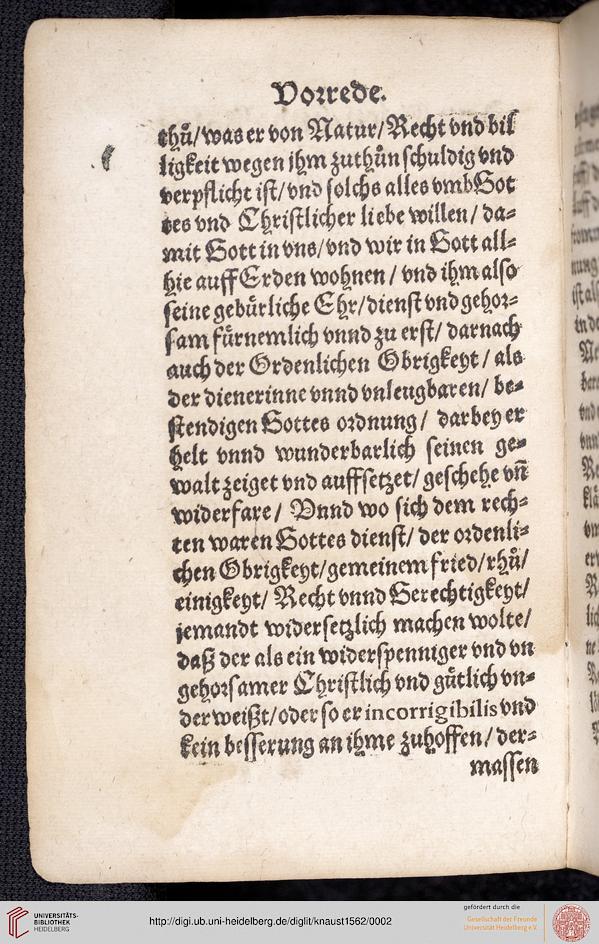 Vorrede.
thů/ was er von Natur/ Recht vnd bil
ligkeit wegen jhm zuthůn schuldig vnd
verpflicht ist/ vnd solchs alles vmb Got
tes vnd Christlicher liebe willen/ da=
mit Gott in vns/ vnd wir in Gott all=
hie auff Erden wohnen/ vnd ihm also
seine gebürliche Ehr/ dienst vnd gehor=
sam fürnemlich vnnd zu erst/ darnach
auch der Ordenlichen Obrigkeyt/ als
der dienerinne vnnd vnleugbaren/ be=
stendigen Gottes ordnung/ darbey er
helt vnnd wunderbarlich seinen ge=
walt zeiget vnd auffsetzet/ geschehe vñ
widerfare/ Vnnd wo sich dem rech=
ten waren Gottes dienst/ der ordenli=
chen Obrigkeyt/ gemeinem fried/ rhů/
einigkeyt/ Recht vnnd Gerechtigkeyt/
jemandt widersetzlich machen wolte/
daß der als ein widerspenniger vnd vn
gehorsamer Christlich vnd gütlich vn=
derweißt/ oder so er incorrigibilis vnd
kein besserung an ihme zuhoffen/ der=
massen
UNIVERSITÄTS-
BIBLIOTHEK
HEIDELBERG
http://digi.ub.uni-heidelberg.de/diglit/knaust1562/0002
gefördert durch die
Gesellschaft der Freunde
Universität Heidelberg e.V.